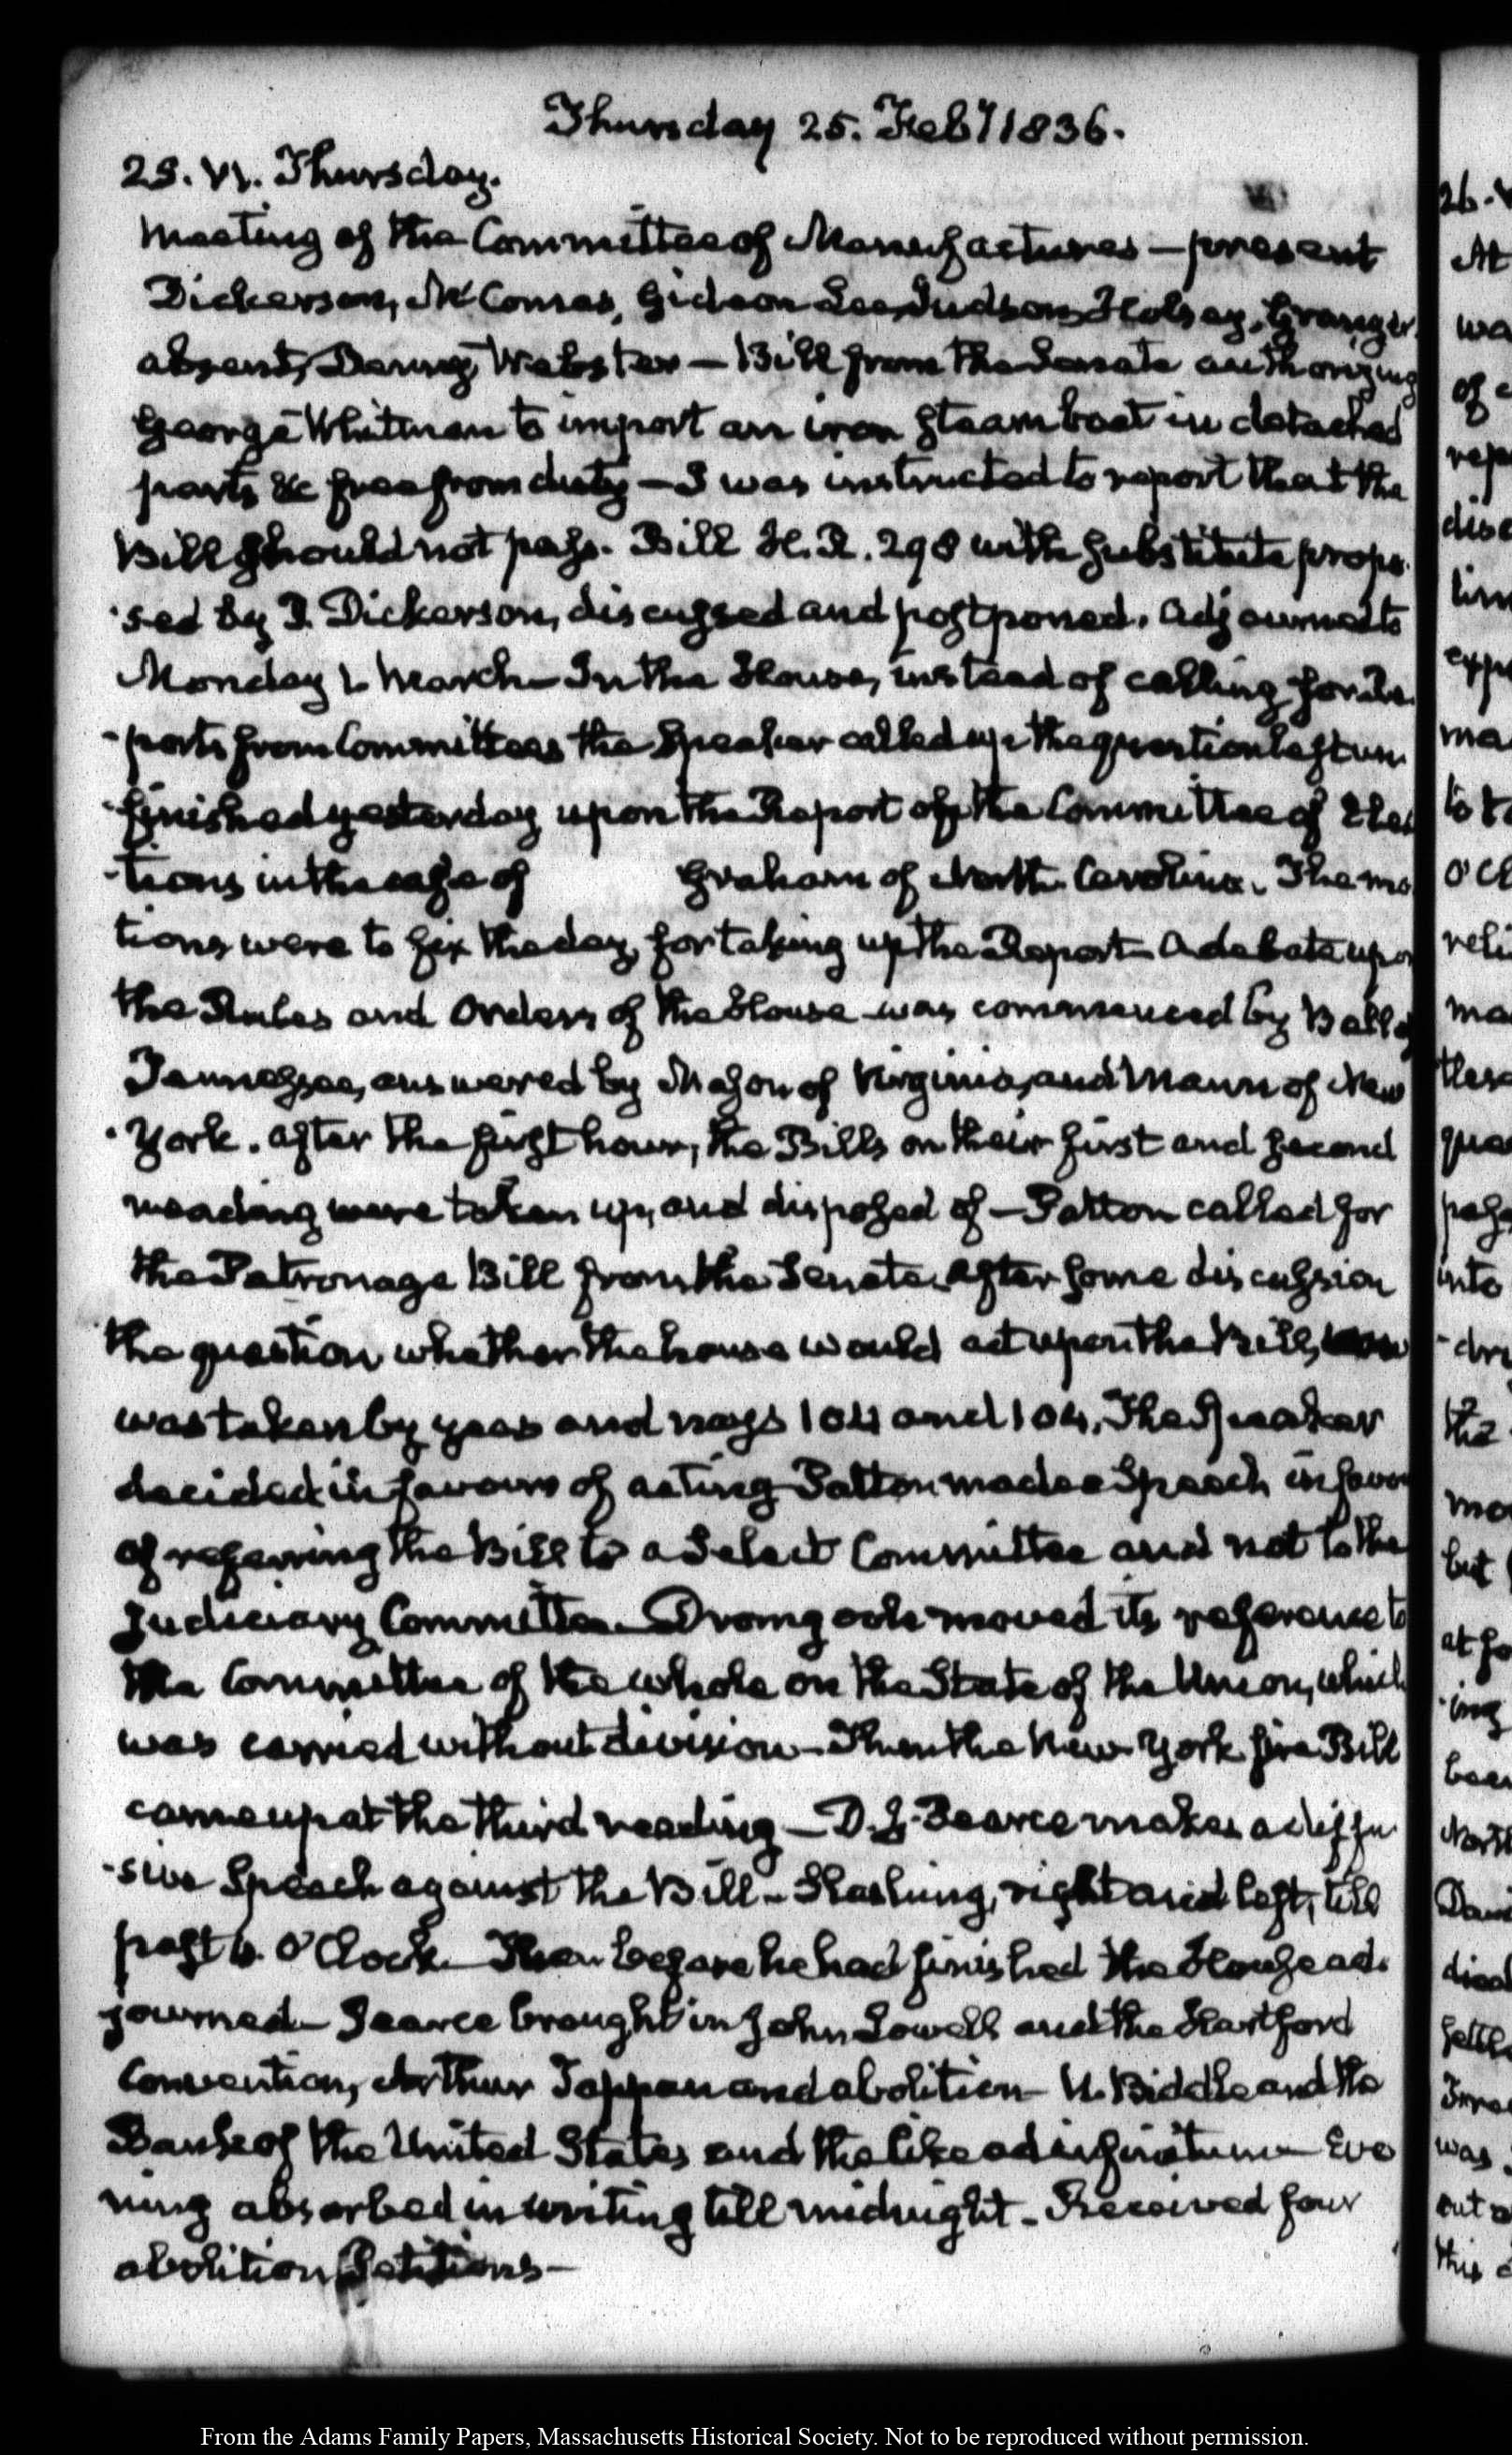 Thursday 25. Feby 1836.
25. VI. Thursday.
Meeting of the Committee of Manufactures — present
Dickerson, McComas, Gideon Lee, Judson, Halsey, Granger.
absent, Denny, Webster — Bill from the Senate authorizing
George Whitman to import an iron steam boat in detached
parts &c free from duty — I was instructed to report that the
Bill should not pass. Bill H.R. 298 with substitute propo-
-sed by P. Dickerson, discussed and postponed. Adjourned to
Monday March — In the House, instead of calling for Re-
-ports from Committees the Speaker called up the question left un-
-finished yesterday upon the Report of the Committee of Elec
-tions in the case of Graham of North Carolina. The mo
tions were to fix the day, for taking up the Report — A debate upon
the Rules and Orders of the House was commenced by Bell of
Tennessee, answered by Mason of Virginia, and Mann of New
-York. After the first hour, the Bills on their first and second
reading were taken up, and disposed of — Patton called for
the Patronage Bill from the Senate. After some discussion
the question whether the house would act upon the Bill,
was taken by yeas and nays 104 and 104. The Speaker
decided in favour of acting — Patton made a Speech in favour
of referring the Bill to a Select Committee and not to the
Judiciary Committee — Dromgoole moved its reference to
the Committee of the whole on the State of the Union, which
was carried without division — Then the New York fire Bill
came up at the third reading — D. J. Pearce makes a diffu-
-sive Speech against the Bill — Slashing, right and left, till
past 4. O'Clock — Then before he had finished the House ad-
journed — Pearce brought in John Lowell and the Hartford
Convention, Arthur Tappan and abolition — N. Biddle and the
Bank of the United States and the like ad infinitum — Eve
ning absorbed in writing till midnight — Received four
abolition Petitions —
26.
At
wa
of
rep
disc
lin
expr
ma
to t
O'Cl
reli
ma
thes
que
pass
into
-dr
the
mo
but
at
-ing
been
North
Davi
died
settl
was
out
this
From the Adams Family Papers, Massachusetts Historical Society. Not to be reproduced without permission.